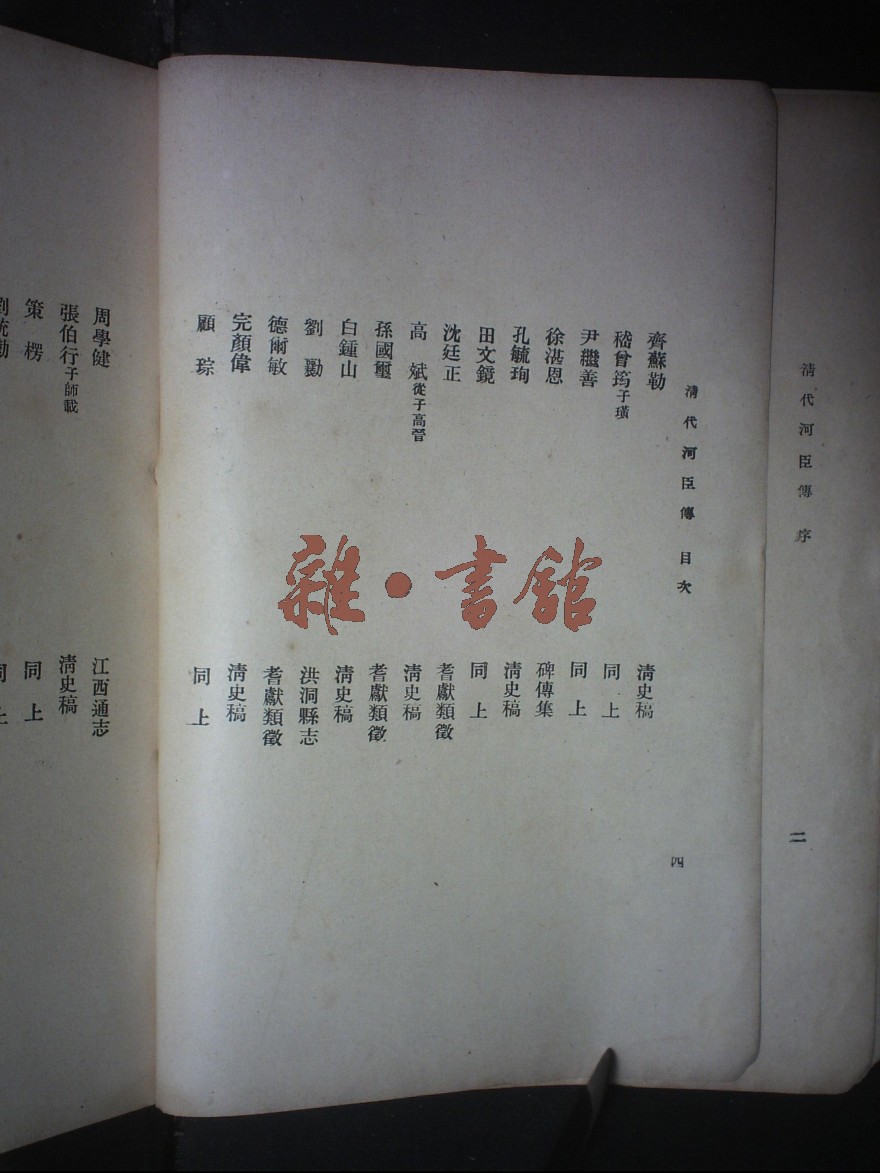 清代河臣傳 序
二
清代河臣傳 目次
四
齊蘇勒 清史稿
嵇曾筠子璜 同上
尹繼善 同上
徐湛恩 碑傳集
孔毓珣 清史稿
田文鏡 同上
沈廷正 耆獻類徵
高斌從子高晉 清史稿
孫國璽 耆獻類徵
白鍾山 清史稿
劉勷 洪洞縣志
德爾敏 耆獻類徵
完顏偉 清史稿
顧琮 同上
周學健 江西通志
張伯行子師載 清史稿
策楞 同上
雜·書館